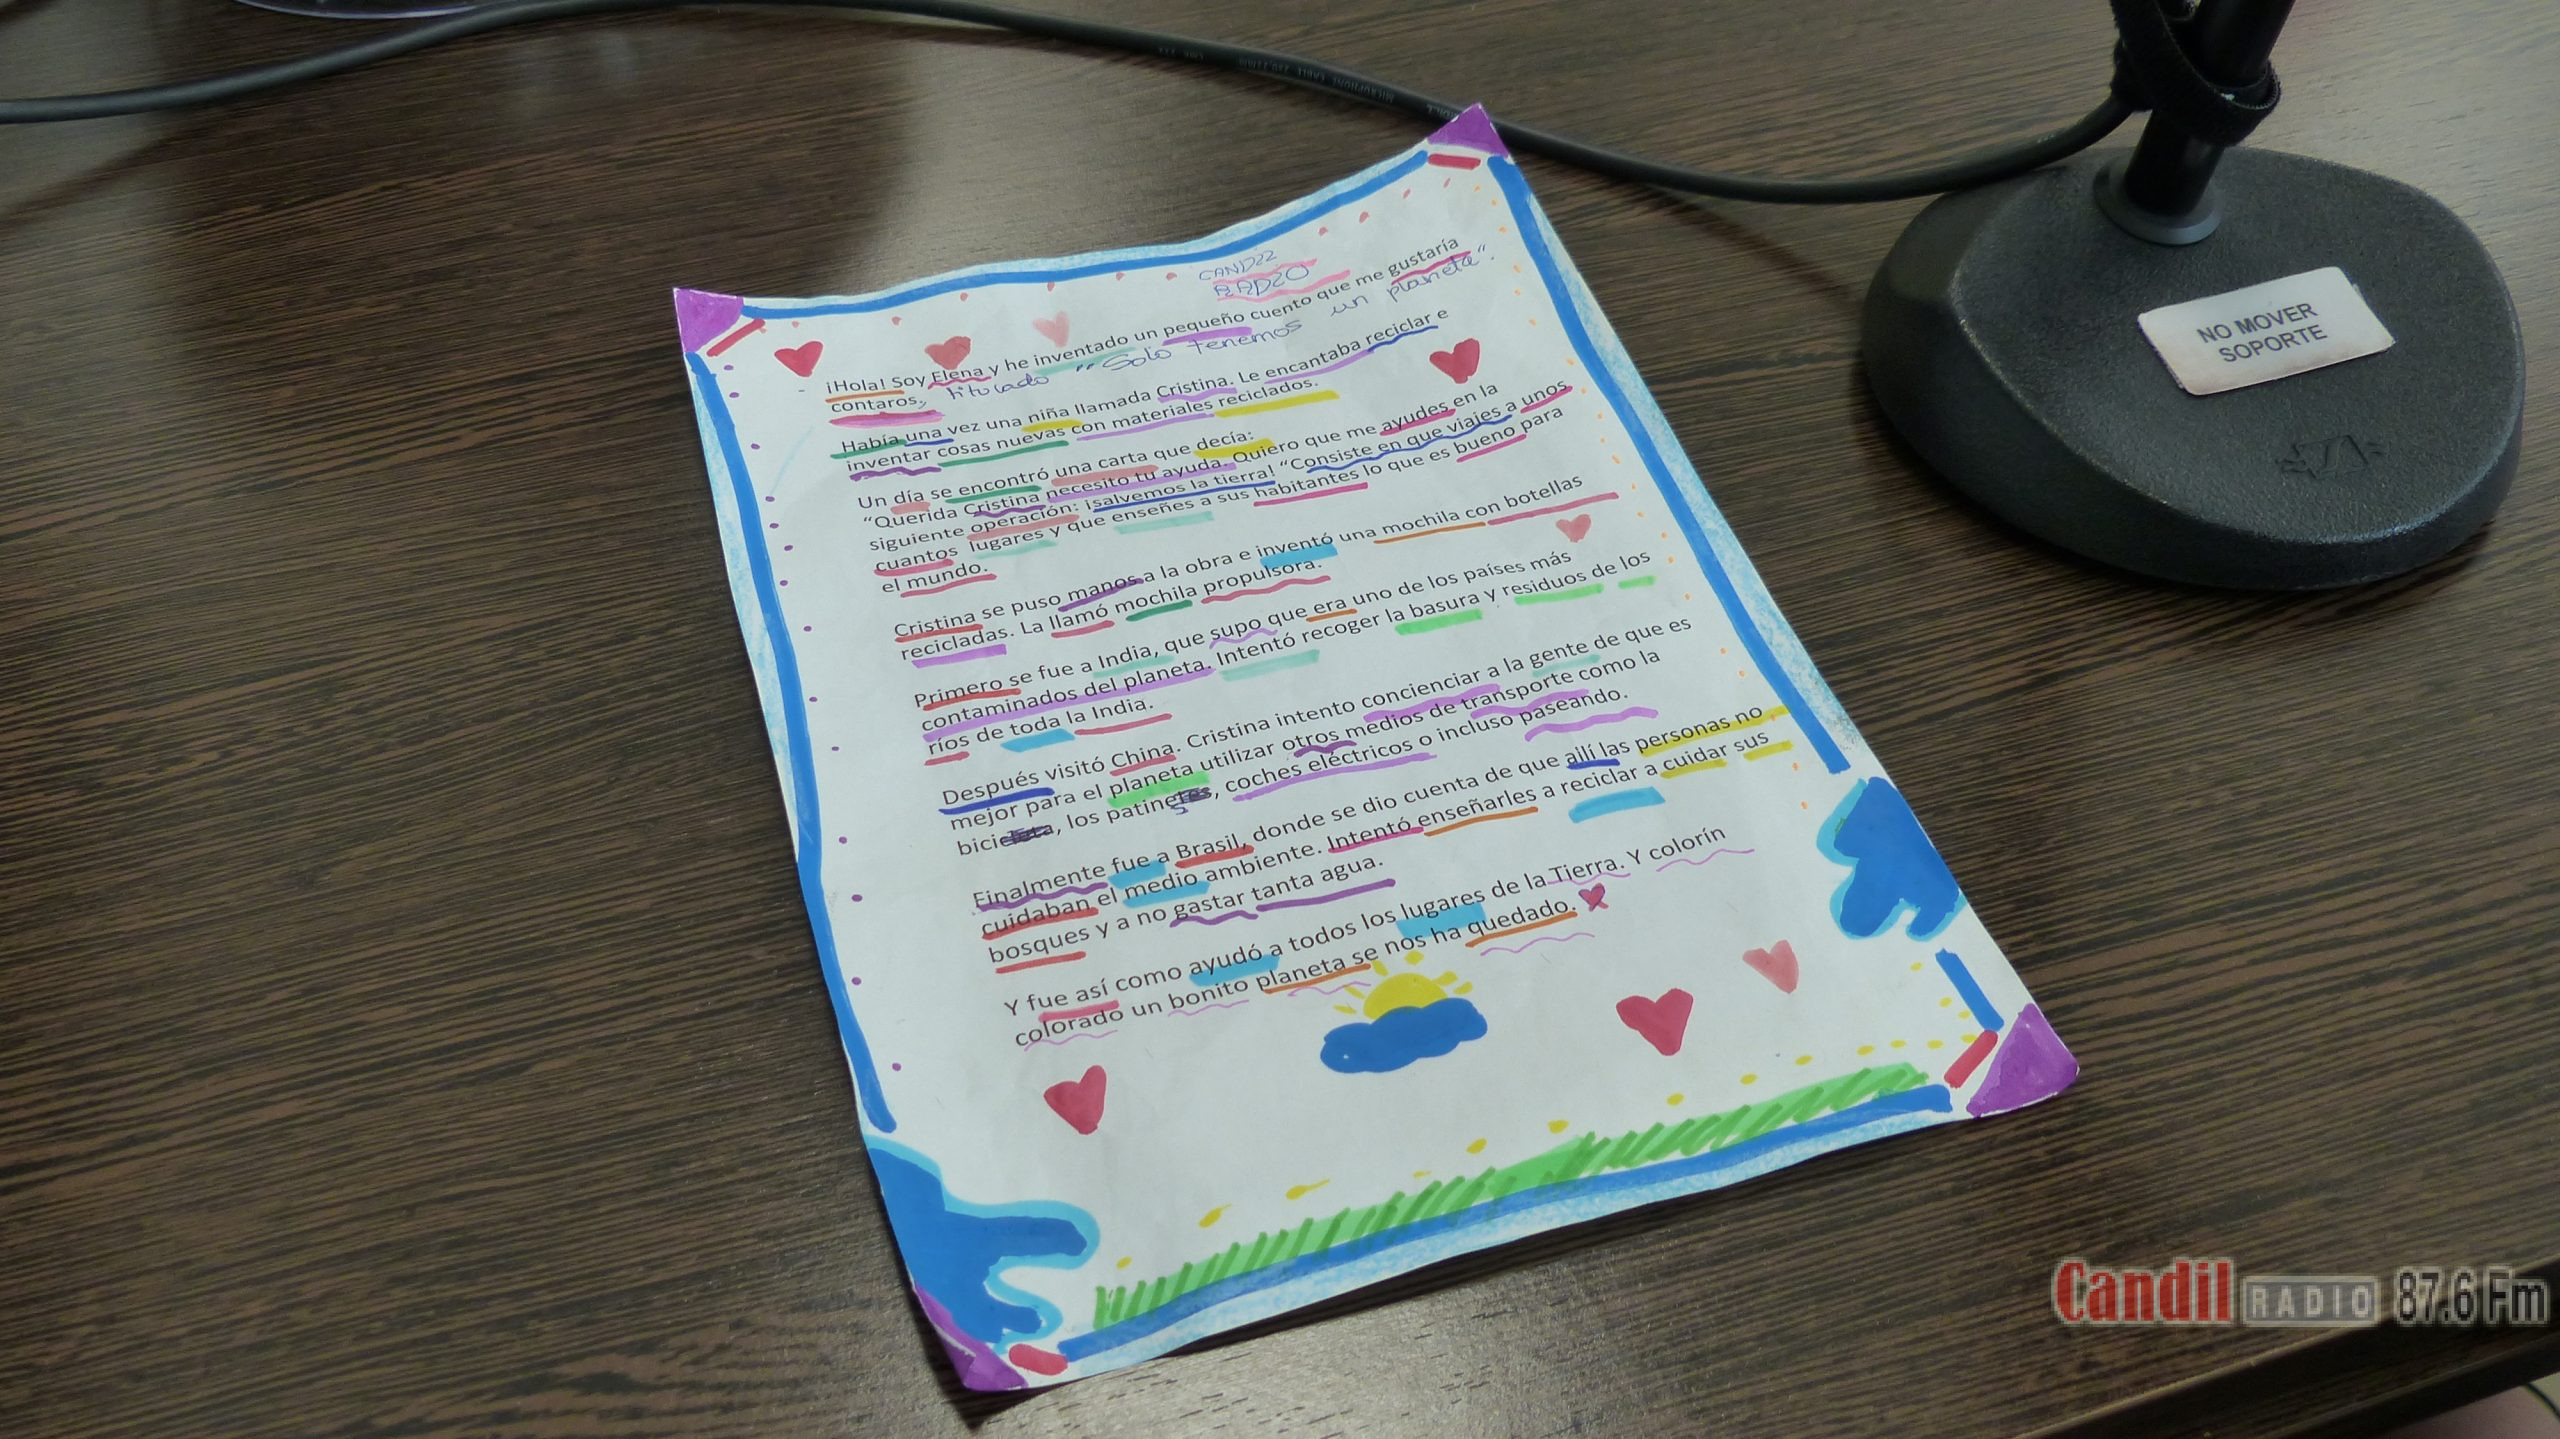 CANDIL
RADIO
¡Hola! Soy Elena y he inventado un pequeño cuento que me gustaría
contaros, titulado "Solo tenemos un planeta".
Había una vez una niña llamada Cristina. Le encantaba reciclar e
inventar cosas nuevas con materiales reciclados.
Un día se encontró una carta que decía:
"Querida Cristina necesito tu ayuda. Quiero que me ayudes en la
siguiente operación: ¡salvemos la tierra! "Consiste en que viajes a unos
cuantos lugares y que enseñes a sus habitantes lo que es bueno para
el mundo.
Cristina se puso manos a la obra e inventó una mochila con botellas
recicladas. La llamó mochila propulsora.
Primero se fue a India, que supo que era uno de los países más
contaminados del planeta. Intentó recoger la basura y residuos de los
ríos de toda la India.
Después visitó China. Cristina intento concienciar a la gente de que es
mejor para el planeta utilizar otros medios de transporte como la
bicicleta, los patinetes, coches eléctricos o incluso paseando.
Finalmente fue a Brasil, donde se dio cuenta de que ailí las personas no
cuidaban el medio ambiente. Intentó enseñarles a reciclar a cuidar sus
bosques y a no gastar tanta agua.
Y fue así como ayudó a todos los lugares de la Tierra. Y colorín
colorado un bonito planeta se nos ha quedado.
NO MOVER
SOPORTE
Candil RADIO 87.6 Fm